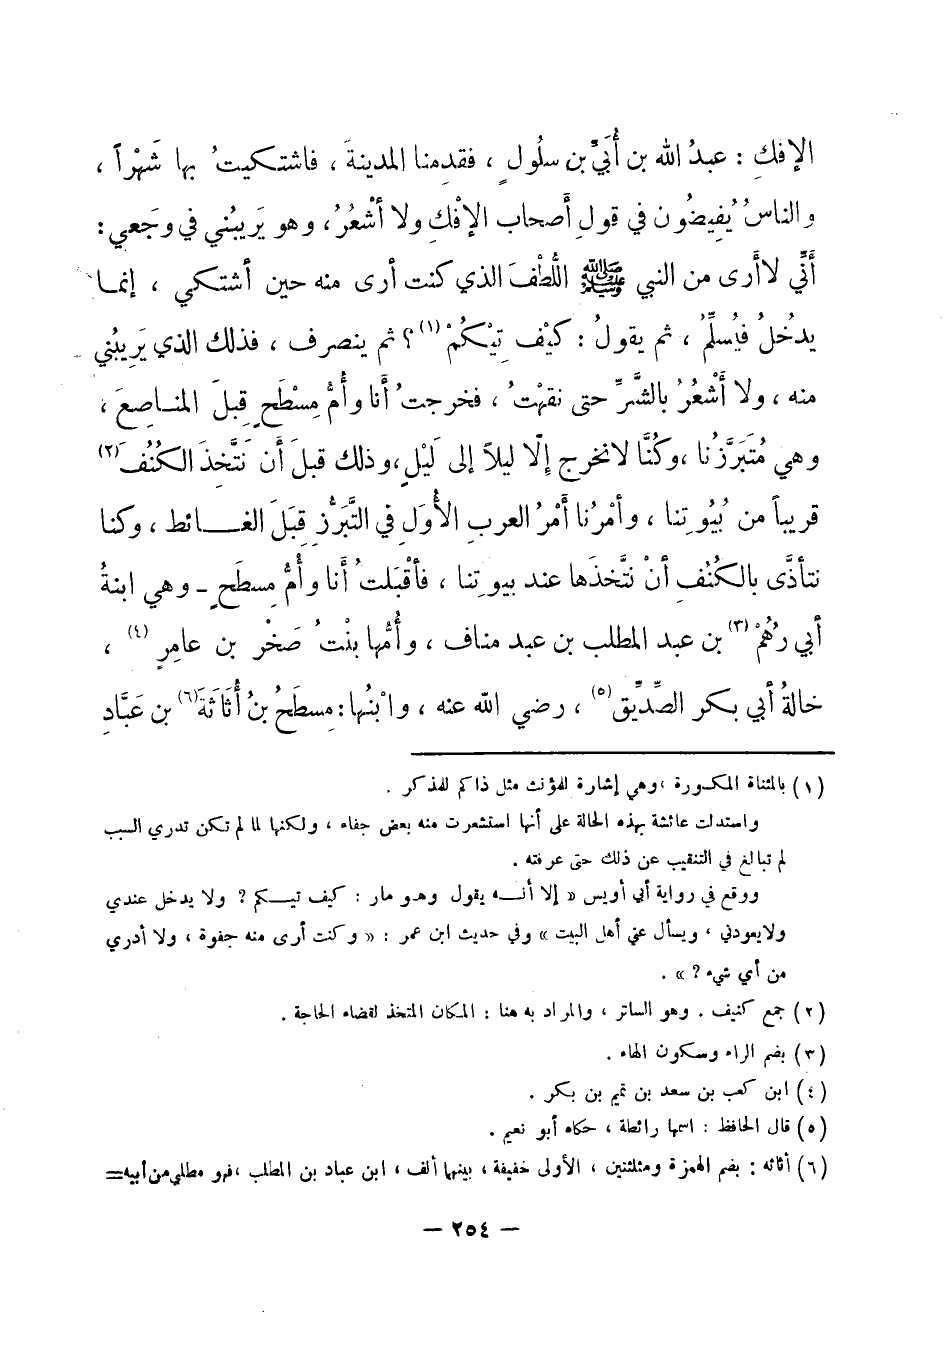 الإفكِ : عبدُ الله بن أُبَيِّ بن سلُولٍ ، فقدمنا المدينةَ ، فاشتكيتُ بها شَهْراً ،
والناسُ يُفيضُون في قولِ أَصحاب الإفْكِ ولا أشْعُرُ، وهو يَريبُني في وَجَعي :
أَنِّي لاأَرى من النبي ﷺ اللُّطْفَ الذي كنت أرى منه حين أشتكي ، إنما
يدخُلُ فيُسلِّمُ ، ثم يقولُ : كَيْف تِيْكُمْ(١)؟ ثم ينصرف ، فذلك الذي يَرِيبُني
منه ، ولا أَشْعُرُ بالشَّرِّ حتى نقهْتُ ، فخرجتُ أَنا وأُمُّ مِسْطَحٍ قِبلَ المناصِعَ ،
وهي مُتَبَرَّزُنا ،وكُنَّا لانخرج إِلّا ليلاً إلى لَيْلٍ،وذلك قبلَ أَن نَتَّخِذَ الكُنُفَ(٢)
قريباً من بُيُوتِنا ، وأمْرُنا أَمْرُ العربِ الأُوَلِ في التَّبَرُّزِ قِبَلَ الغائط ، وكنا
نتأذَّى بالكُنُفِ أنْ نتَّخذَها عند بيوتِنا ، فأقْبَلتُ أَنا وأُمُّ مِسطَحٍ ـ وهي ابنةُ
أبي رُهُمْ(٣) بن عبد المطلب بن عبد مناف ، وأُمُّها بنْتُ صَخْرِ بن عامِرٍ (٤) ،
خالةُ أبي بكر الصِّدِّيق(٥) ، رضي الله عنه ، وابْنُها: مِسطَحُ بنُ أُثَاثَةَ(٦) بن عَبَّادِ
(١) بالمثناة المكسورة ،وهي إشارة للمؤنث مثل ذاكم للمذكر .
واستدلت عائشة بهذه الحالة على أنها استشعرت منه بعض جفاء ، ولكنها لما لم تكن تدري السبب
لم تبالغ في التنقيب عن ذلك حتى عرفته .
ووقع في رواية أبي أويس « إلا أنه يقول وهو مار : كيف تيكم ? ولا يدخل عندي
ولايعودني ، ويسأل عني أهل البيت » وفي حديث ابن عمر : « وكنت أرى منه جفوة ، ولا أدري
من أي شيء ? » .
(٢) جمع كنيف . وهو الساتر ، والمراد به هنا : المكان المتخذ لقضاء الحاجة .
(٣) بضم الراء وسكون الهاء .
(٤) ابن كعب بن سعد بن تميم بن بكر .
(٥) قال الحافظ : اسمها رائطة ، حكاه أبو نعيم .
(٦) أثاثه : بضم الهمزة ومثلثتين ، الأولى خفيفة ، بينهما ألف ، ابن عباد بن المطلب ،فهو مطلبي من أبيه=
— ٢٥٤ —